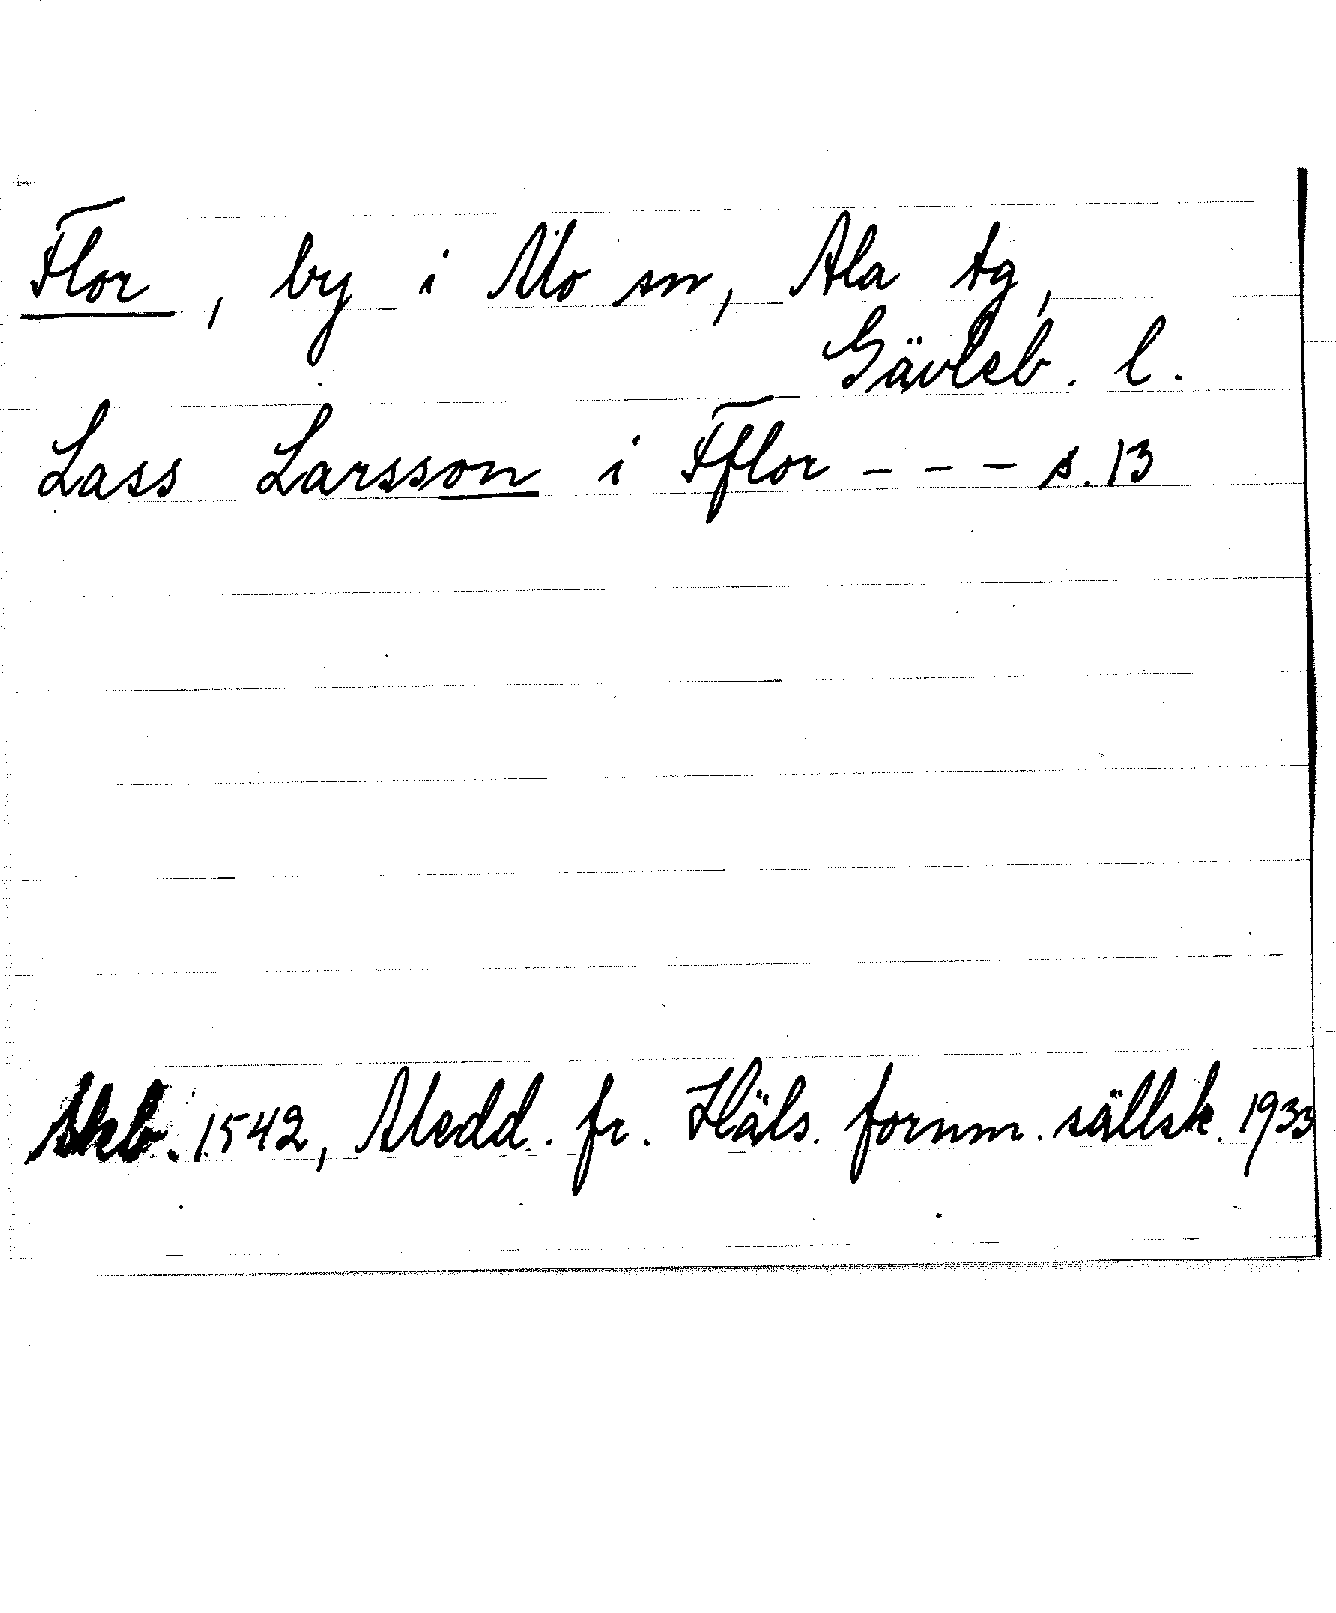 Flor, by i Mo sn, Ala tg,
Gävleb. l.
Lass Larsson i Fflor - - - s. 13
Skb. 1542, Medd. fr. Häls. fornm. sällsk. 1933